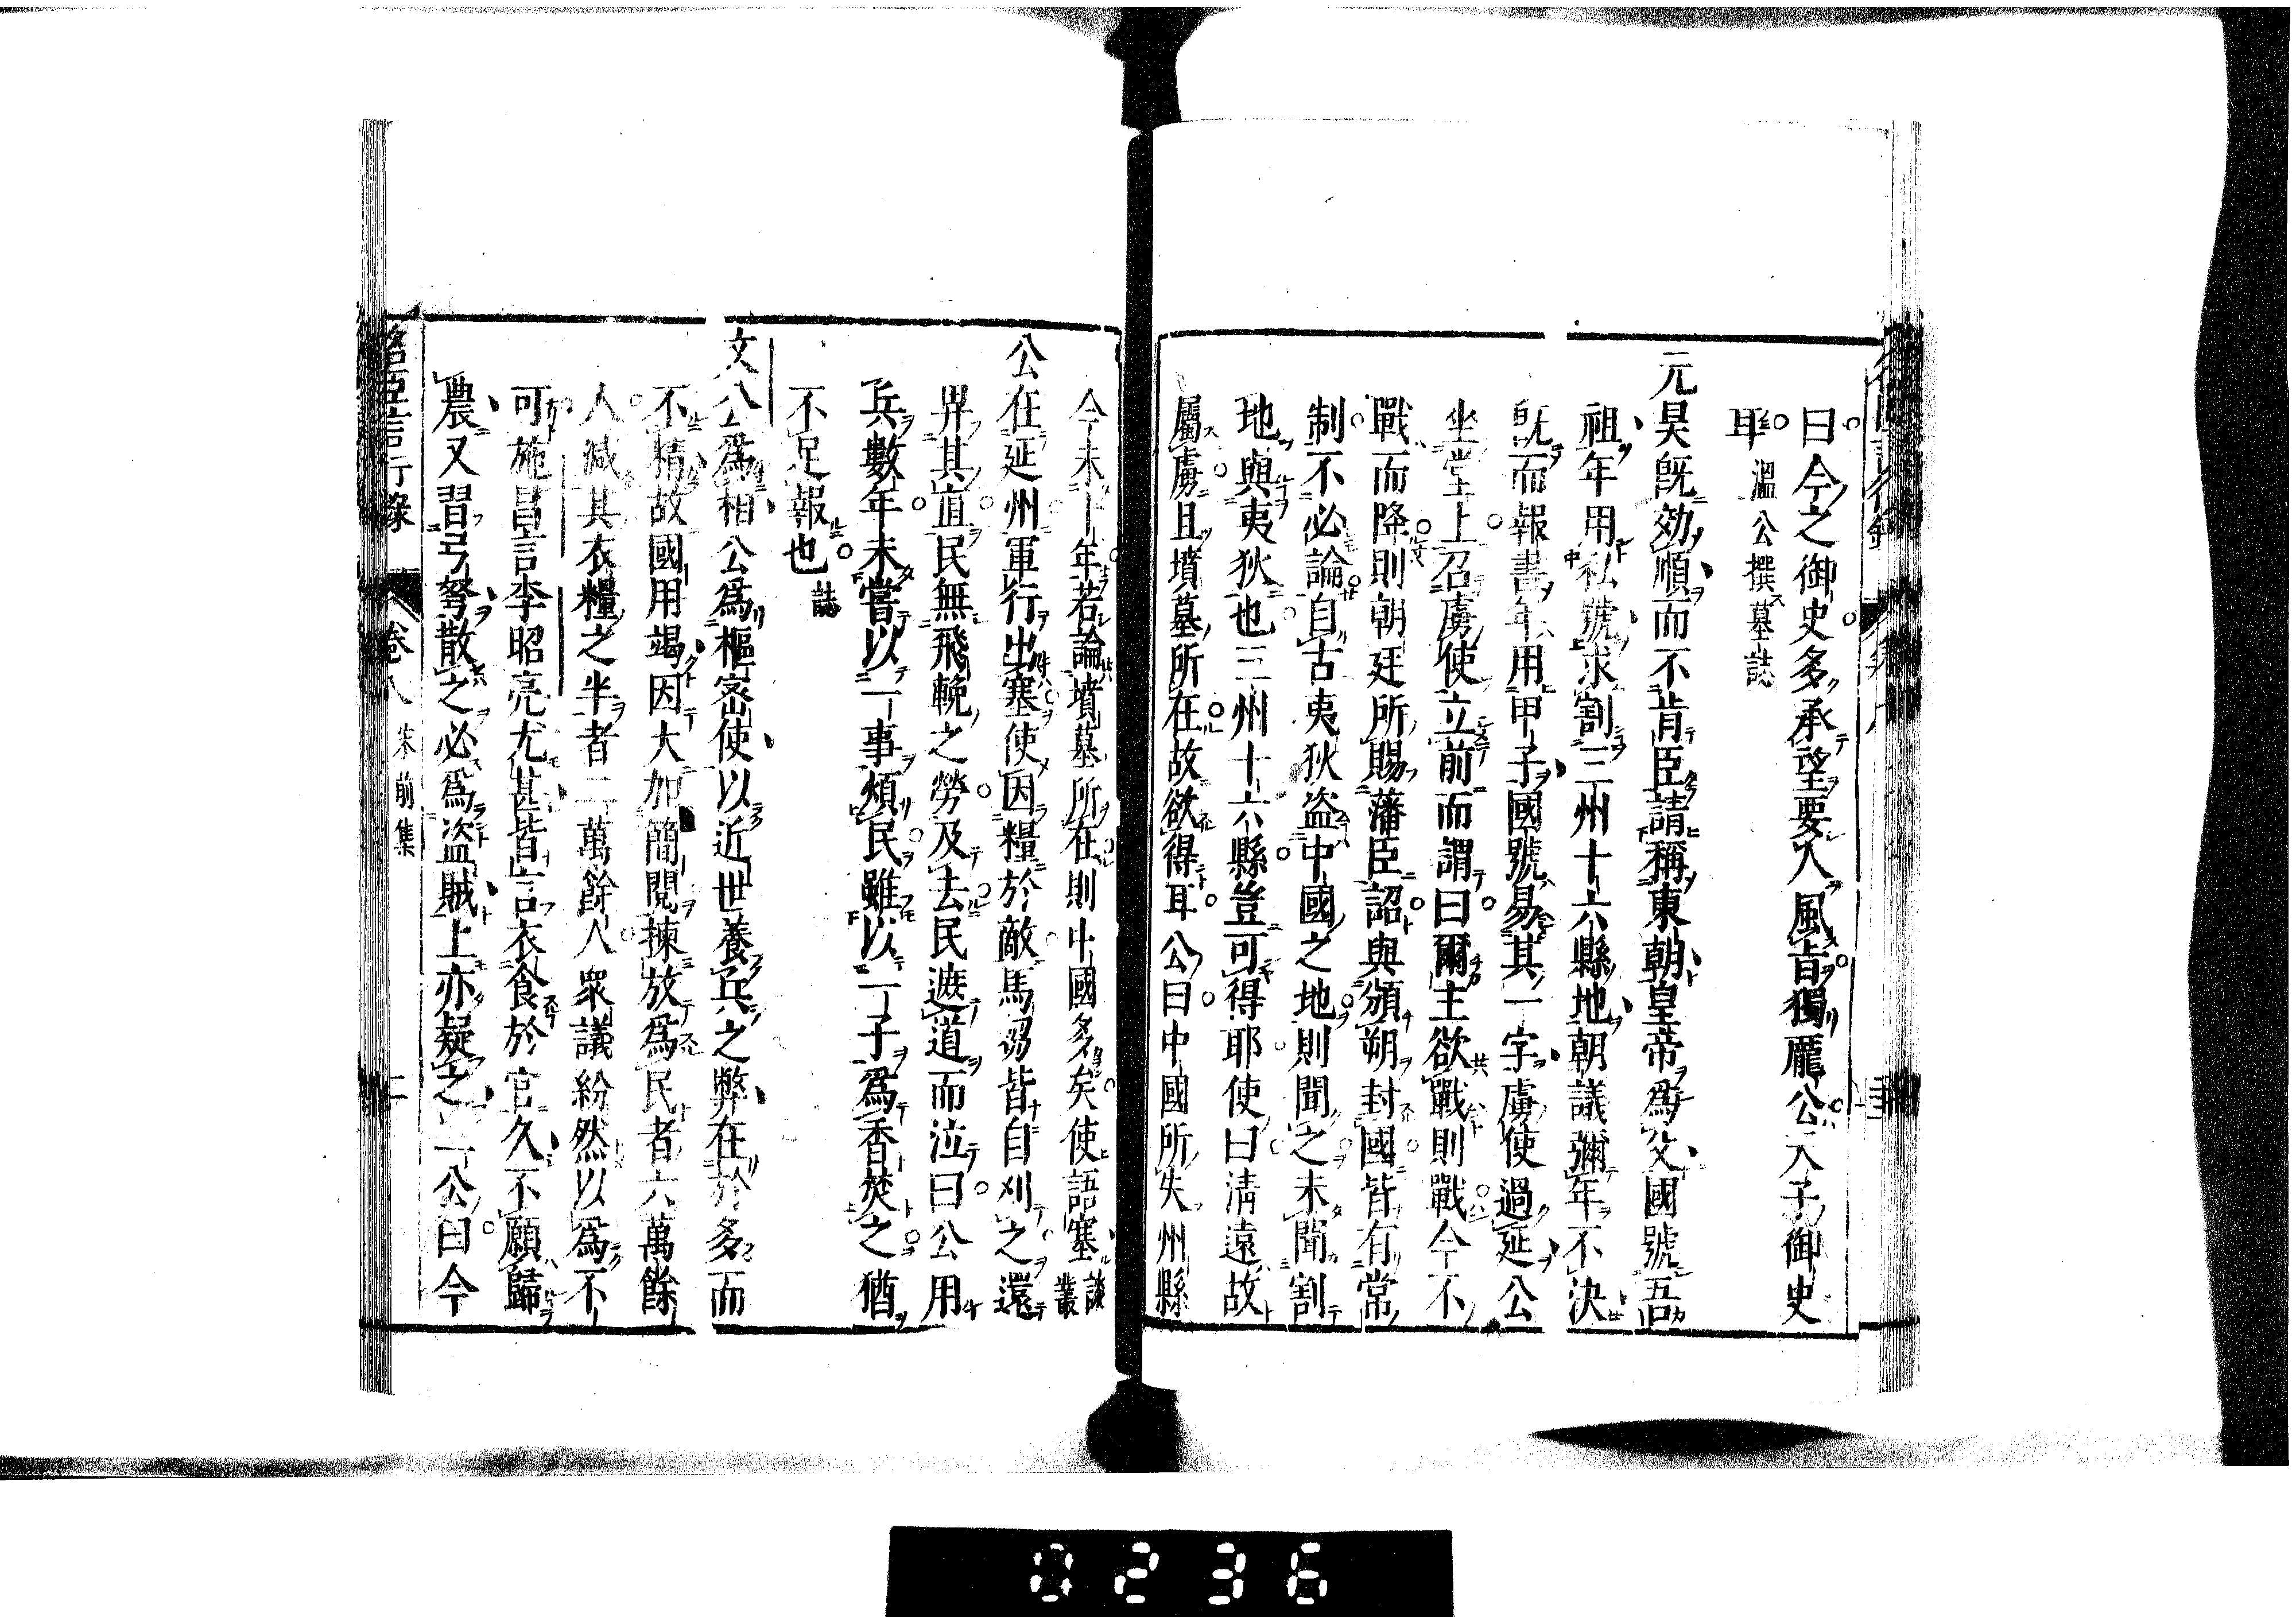 曰今之御史多承望要人風旨獨龐公天子御史
耳 溫公撰墓誌
元昊既効順而不肯臣請稱東朝皇帝為父國號吾
祖年用私號求割三州十六縣地朝議彌年不決
既而報書年用甲子國號易其一字虜使過延公
坐堂上召虜使立前而謂曰爾主欲戰則戰今不
戰而降則朝廷所賜藩臣詔與頒朔封國皆有常
制不必論自古夷狄盜中國之地則聞之未聞割
地與夷狄也三州十六縣豈可得耶使曰清遠故
屬虜且墳墓所在故欲得耳公曰中國所失州縣
今未十年若論墳墓所在則中國多矣使語塞 談叢
公在延州軍行出塞使因糧於敵馬芻皆自刈之還
界其直民無飛輓之勞及去民遮道而泣曰公用
兵數年未嘗以一事煩民雖以一子為香焚之猶
不足報也 誌
文公為相公為樞密使以近世養兵之弊在於多而
不精故國用竭因大加簡閱揀放為民者六萬餘
人減其衣糧之半者二萬餘人衆議紛然以為不
可施昌言李昭亮尤甚皆言衣食於官久不願歸
農又習弓弩散之必為盜賊上亦疑之二公曰今
名臣言行錄 卷八 宋前集
0236